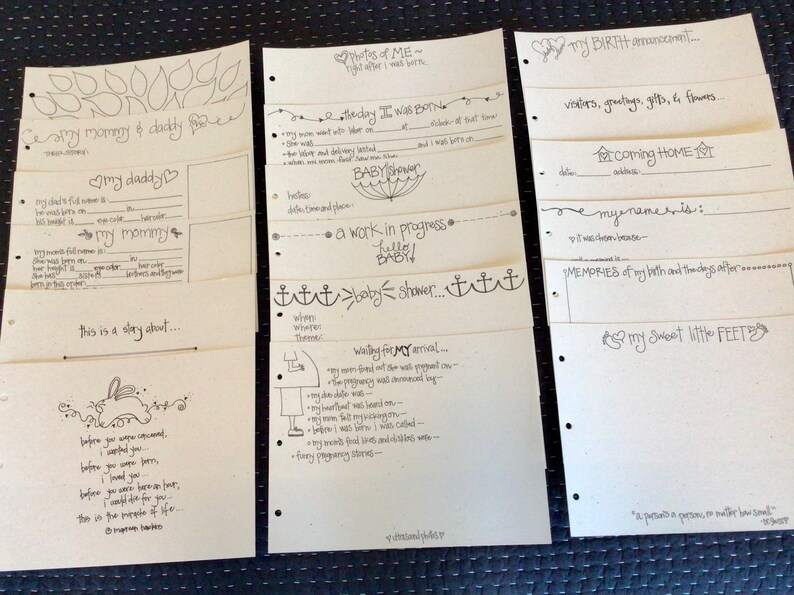 my mommy & daddy
THEIR STORY:
my daddy
my dad's full name is:
he was born on in
his height is eye color hair color
my mommy
my mom's full name is:
she was born on in
her height is eye color hair color
she has brothers and they were
born in this order
this is a story about...
before you were conceived,
i wanted you...
before you were born,
i loved you...
before you were here an hour,
i would die for you...
this is the miracle of life...
photos of ME ~
right after i was born...
the day I was BORN
• my mom went into labor on at o'clock - at that time
• she was
• the labor and delivery lasted and i was born on
• when my mom first saw me she
BABY shower
hostess:
date, time and place:
a work in progress
hello
BABY!
baby shower...
when:
where:
Theme:
waiting for MY arrival...
• my mom found out she was pregnant on —
• the pregnancy was announced by —
• my due date was —
• my heartbeat was heard on —
• my mom felt my kicking on —
• before i was born i was called —
• my mom's food likes and dislikes were —
• funny pregnancy stories —
ultrasound photos
my BIRTH announcement...
visitors, greetings, gifts, & flowers...
coming HOME
date: address:
my name is:
it was chosen because —
MEMORIES of my birth and the days after
my sweet little FEET
"a person's a person, no matter how small."